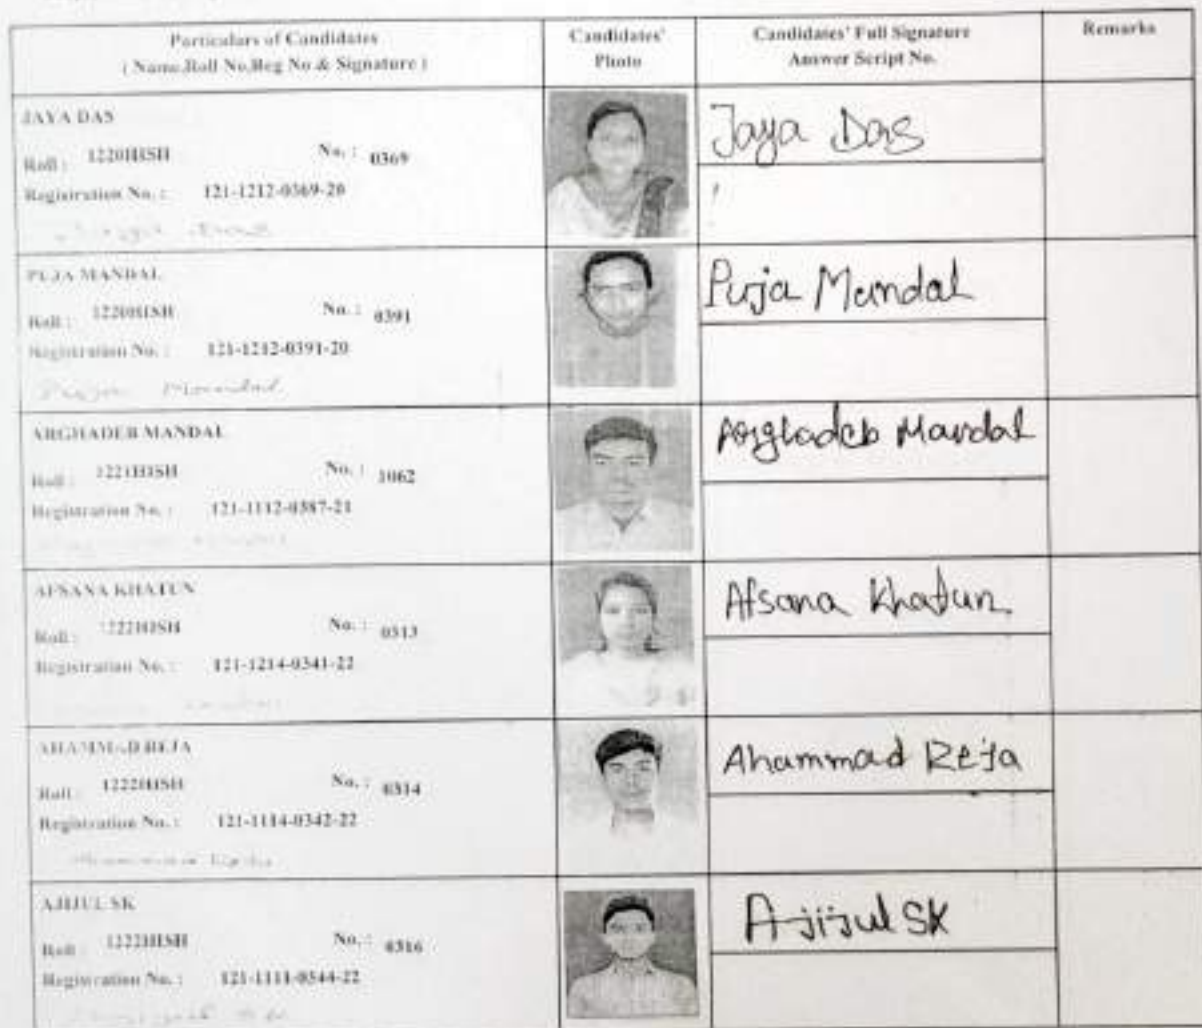 Particulars of Candidates
( Name,Roll No,Reg No & Signature )
Candidates'
Photo
Candidates' Full Signature
Answer Script No.
Remarks
JAYA DAS
Roll : 1220HISH No. : 0369
Registration No. : 121-1212-0369-20
Jaya Das
PUJA MANDAL
Roll : 1220HISH No. : 0391
Registration No. : 121-1212-0391-20
Puja Mandal
Puja Mandal
ARGHADEB MANDAL
Roll : 1221HISH No. : 1062
Registration No. : 121-1112-0387-21
Arghadeb Mandal
AFSANA KHATUN
Roll : 1222HISH No. : 0313
Registration No. : 121-1214-0341-22
Afsana Khatun
AHAMMAD REJA
Roll : 1222HISH No. : 0314
Registration No. : 121-1114-0342-22
Ahammad Reja
AJIJUL SK
Roll : 1222HISH No. : 0316
Registration No. : 121-1111-0344-22
Ajijul SK